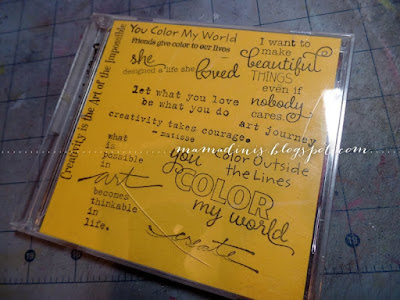 Creativity is the Art of the Impossible
You Color My World
Friends give color to our lives
she
designed a life she loved
I want to
make
beautiful
THINGS
even if
nobody
cares.
let what you love
be what you do
art journey
creativity takes courage.
- matisse
mamadinis.blogspot.com
what
is
possible
in
art
becomes
thinkable
in
life.
you
COLOR
my world
Color Outside
the Lines
create